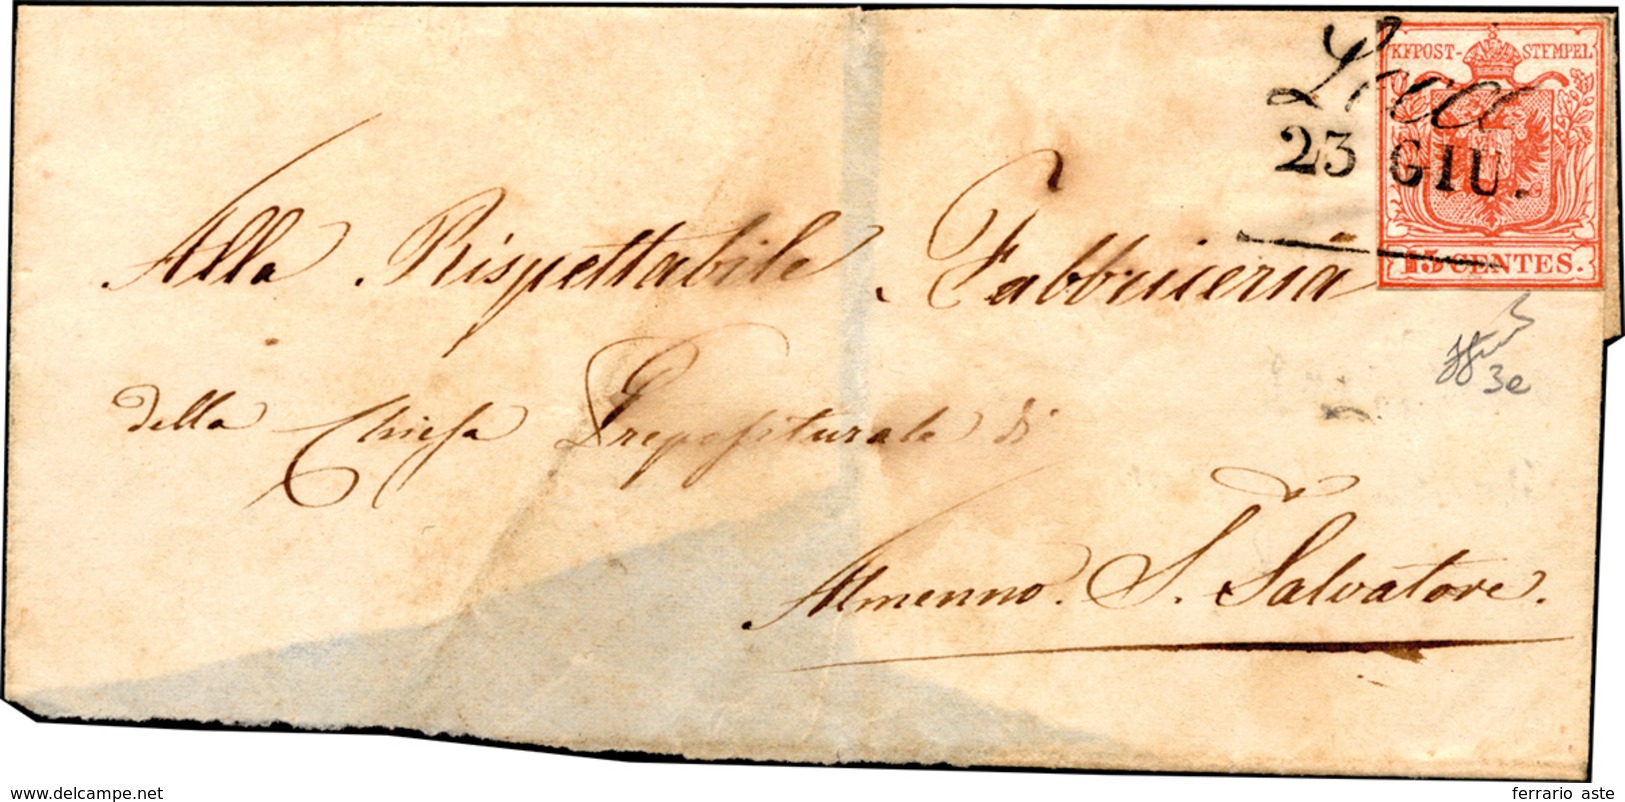 KKPOST-STEMPEL
23 GIU.
15 CENTES.
Alla Rispettabile Fabbriceria
della Chiesa Prepositurale di
Almenno. S. Salvatore.
3e
delcampe.net
ferrario aste